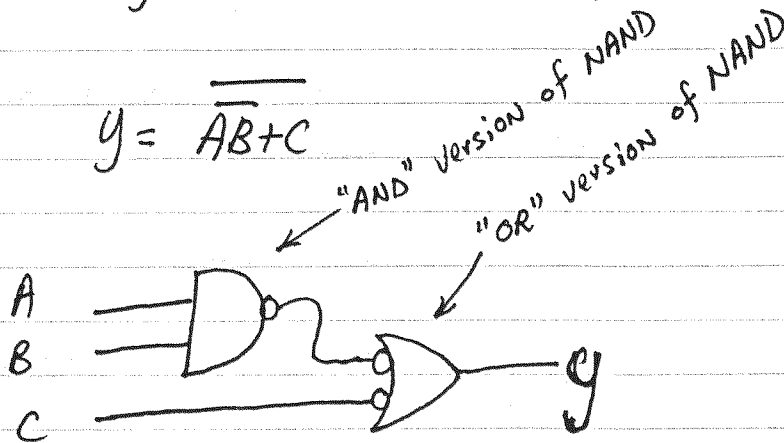 y = \overline{\overline{AB}+C}
"AND" version of NAND
"OR" version of NAND
A
B
C
y